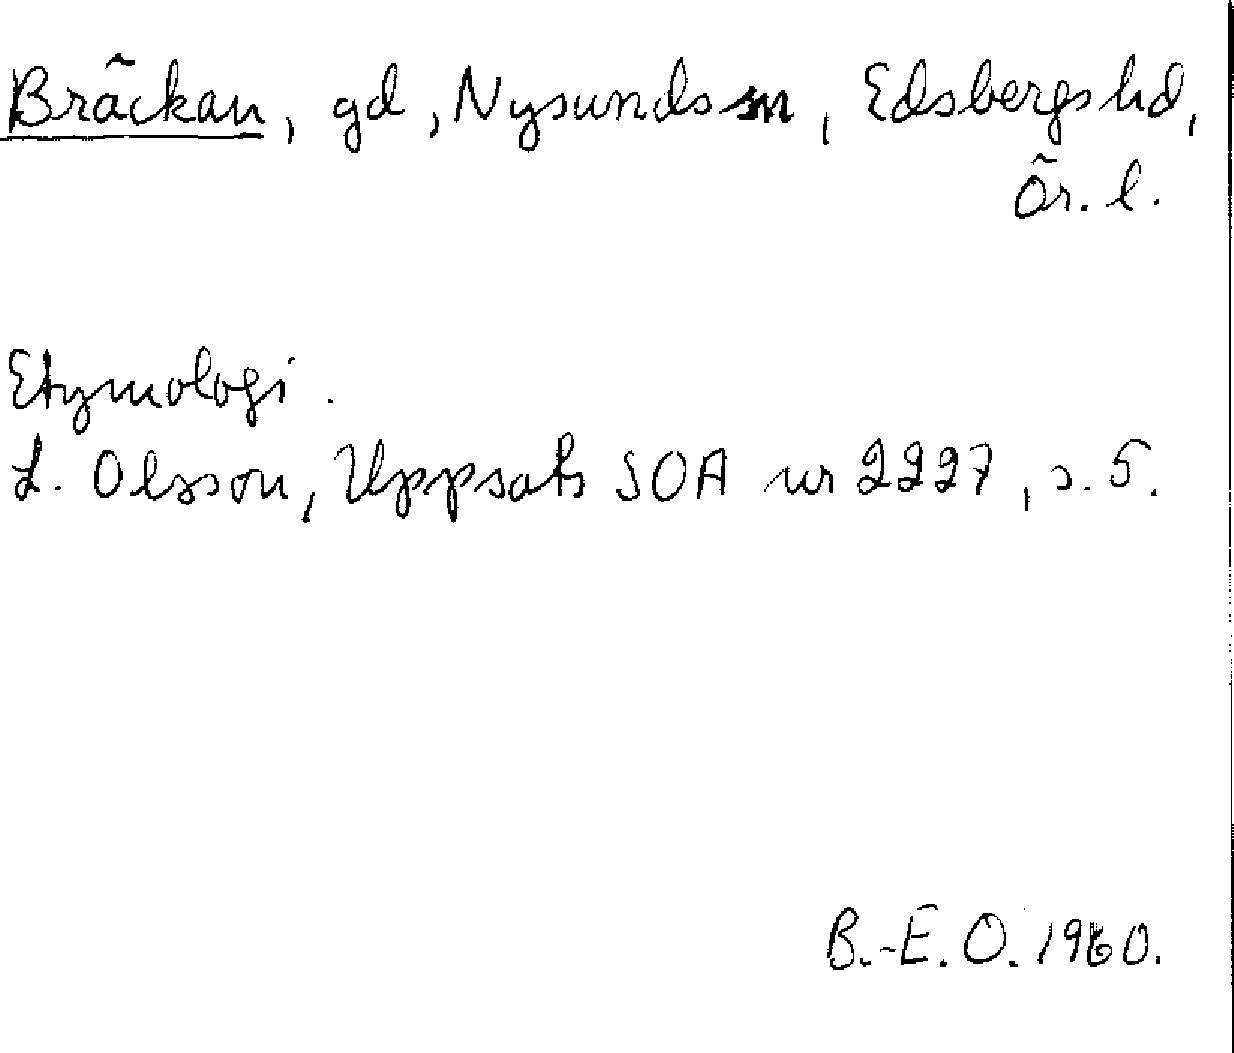 Bräckan, gd, Nysunds sn, Edsbergs hd,
Ör. l.
Etymologi.
L. Olsson, Uppsats SOA nr 2227, s. 5.
B.-E. O. 1960.